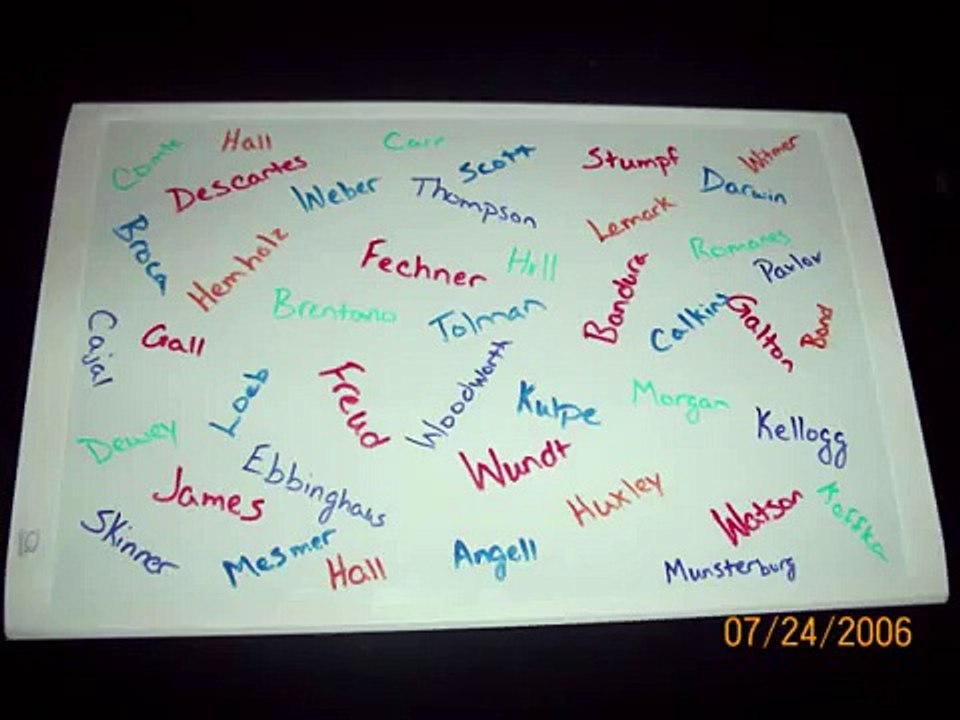 Comte
Hall
Carr
Scott
Stumpf
Witmer
Descartes
Weber
Thompson
Darwin
Lemark
Broca
Hemholz
Fechner
Hill
Romanes
Pavlov
Bandura
Brentano
Tolman
Calkins
Galton
Band
Cajal
Gall
Loeb
Freud
Woodworth
Kulpe
Morgan
Kellogg
Dewey
Ebbinghaus
Wundt
James
Huxley
Watson
Koffka
Skinner
Mesmer
Hall
Angell
Munsterburg
10
07/24/2006